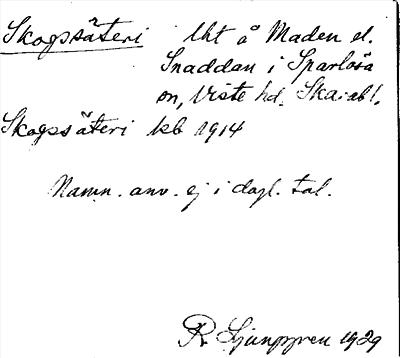 Skogssäteri lht å Maden el.
Snaddan i Sparlösa
sn, Viste hd. Skarabl.
Skogssäteri kb 1914
Namn. anv. ej i dagl. tal.
R Ljunggren 1929